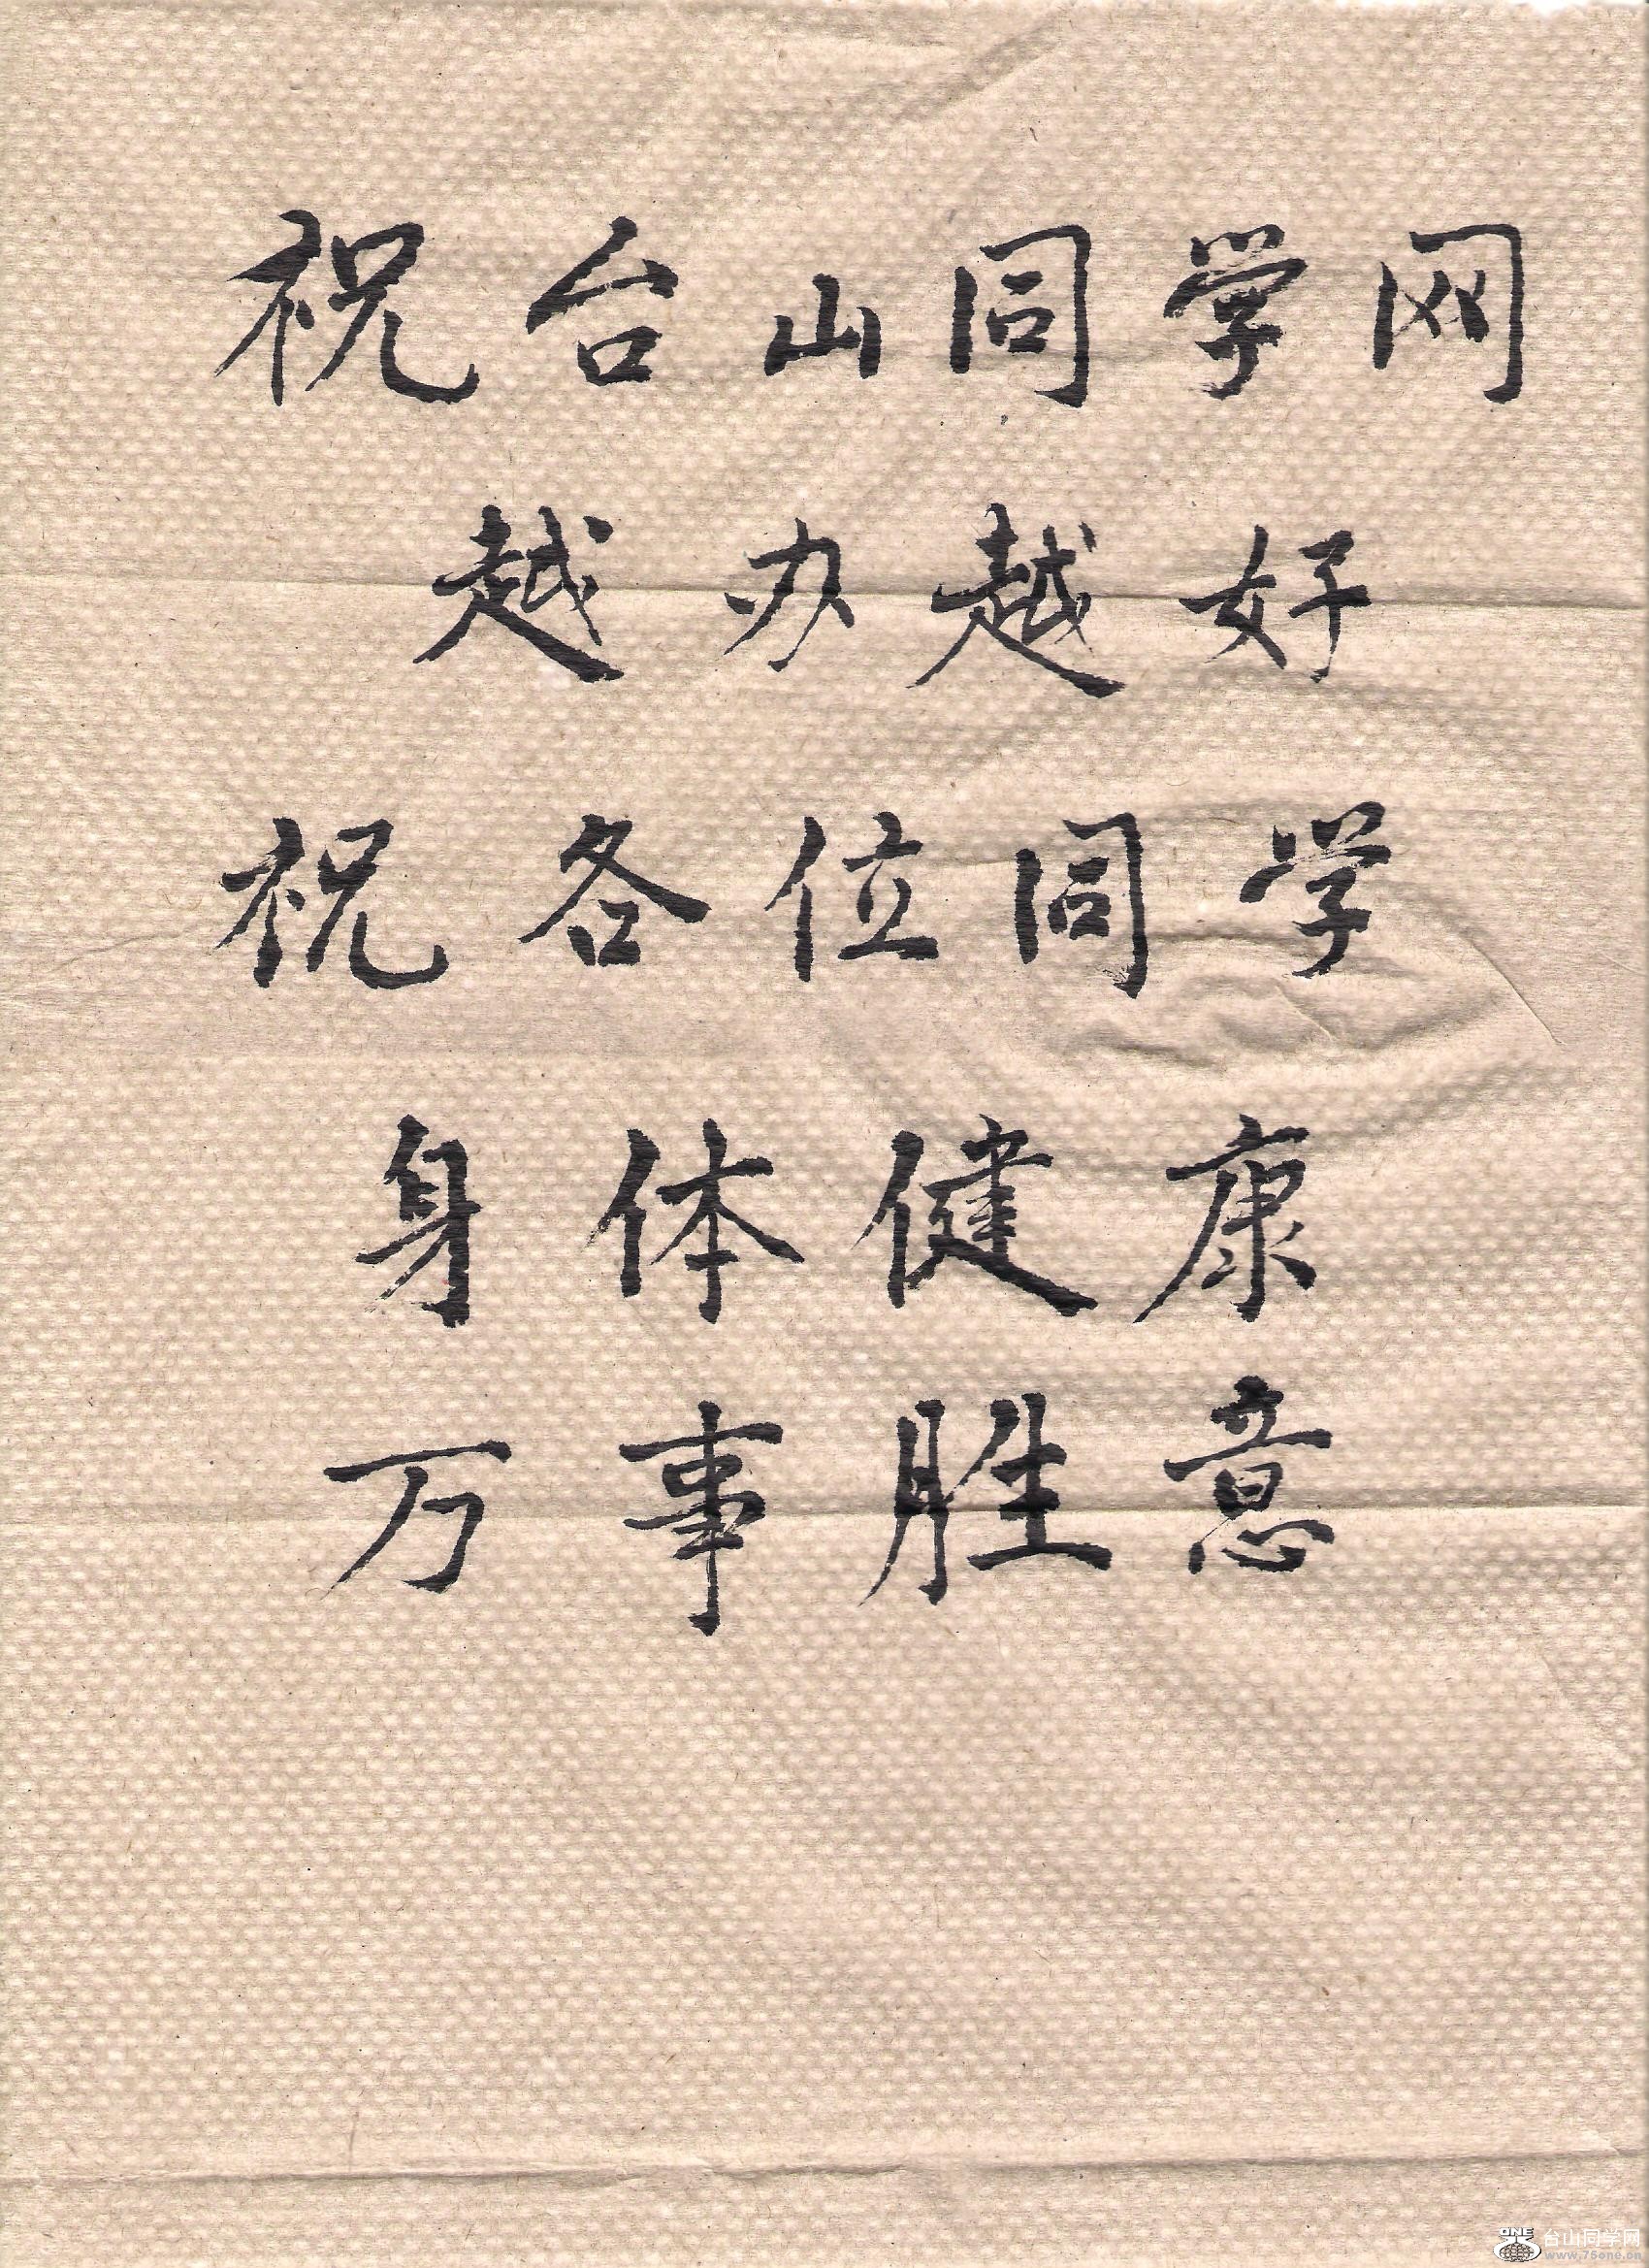 祝台山同学网
越办越好
祝各位同学
身体健康
万事胜意
ONE 台山同学网
www.75one.cn